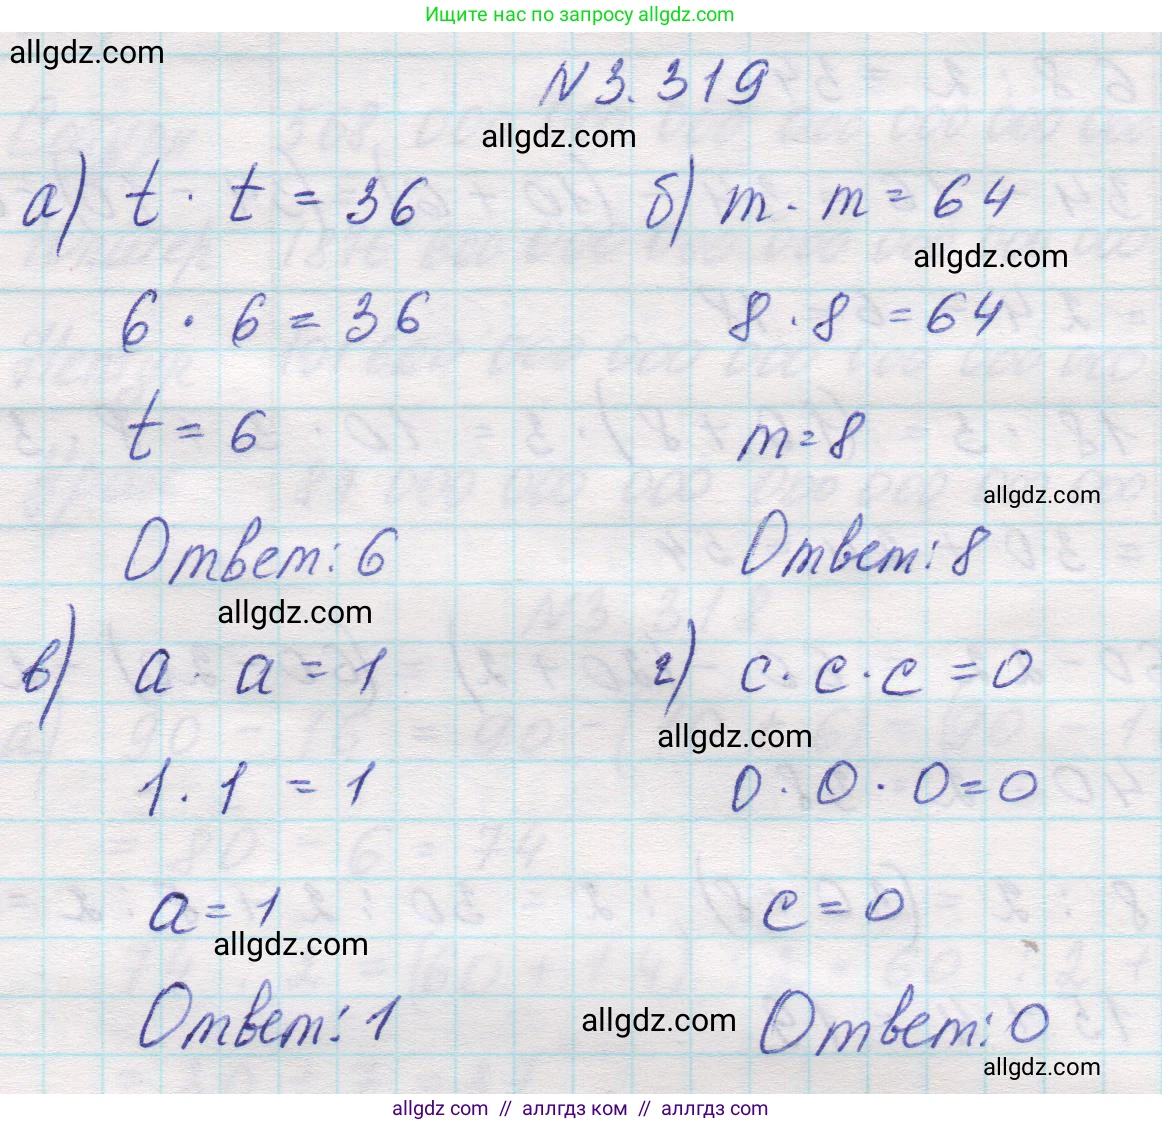 Ищите нас по запросу allgdz.com
allgdz.com
N 3.319
allgdz.com
а) t · t = 36
б) m · m = 64
allgdz.com
6 · 6 = 36
8 · 8 = 64
t = 6
m = 8
allgdz.com
Ответ: 6
Ответ: 8
allgdz.com
в) a · a = 1
г) c · c · c = 0
allgdz.com
1 · 1 = 1
0 · 0 · 0 = 0
a = 1
c = 0
allgdz.com
Ответ: 1
allgdz.com
Ответ: 0
allgdz.com
allgdz com // аллгдз ком // аллгдз.com